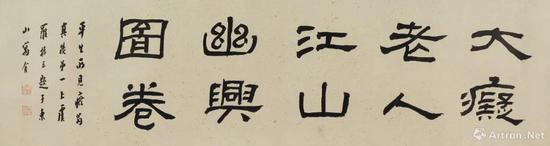 大癡
老人
江山
幽興
圖卷
平生所見癡翁
真蹟第一上虞
羅振玉題于東
山寓舍
Artron.Net